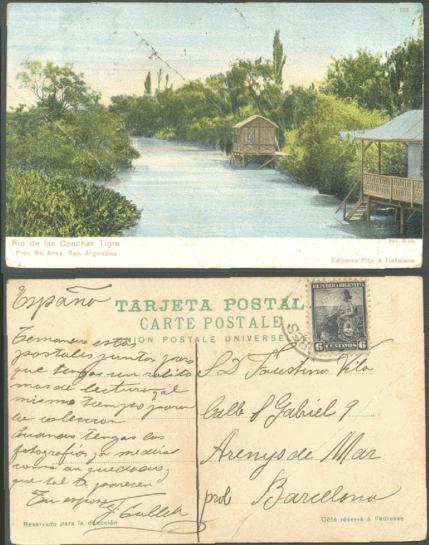 105
Rio de las Conchas Tigre
Prov. Bs. Aires, Rep. Argentina
Editores Pita & Catalano
España
TARJETA POSTAL
CARTE POSTALE
UNION POSTALE UNIVERSELLE
REPUBLICA ARGENTINA
6 CENTAVOS 6
postales juntas para
que tengas un ratito
mas de lectura, al
mismo tiempo para
la coleccion
Cuando tengas las
fotografias, me diras
como an quedado, y
que tal te parecen
S. D. Faustino Vila
Calle S Gabriel 9
Arenys de Mar
prob Barcelona
Reservado para la dirección
Côté réservé à l'adresse